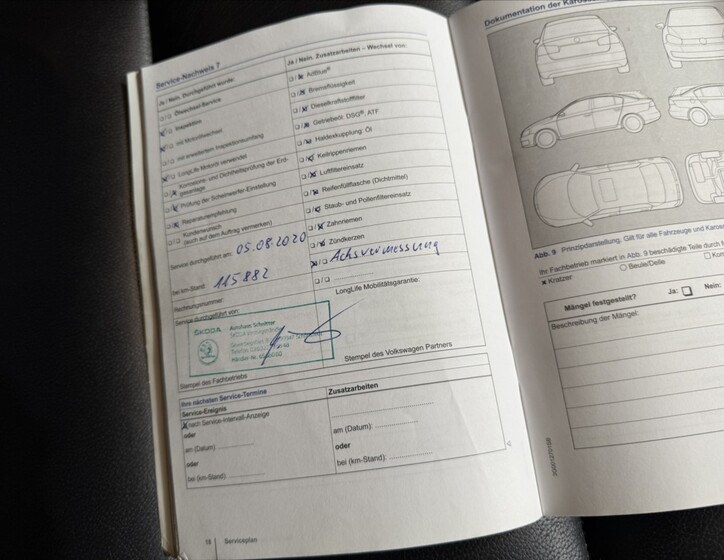 Service-Nachweis 7
Ja / Nein. Durchgeführt wurde:
Ölwechsel-Service
Inspektion
mit Motorölwechsel
mit erweitertem Inspektionsumfang
LongLife Motoröl verwendet
Korrosions- und Dichtheitsprüfung der Erdgasanlage
Prüfung der Scheinwerfer-Einstellung
Reparaturempfehlung
Kundenwunsch
(auch auf dem Auftrag vermerken)
Service durchgeführt am: 05.08.2020
bei km-Stand: 115882
Rechnungsnummer:
Service durchgeführt von:
ŠKODA Autohaus
Stempel des Fachbetriebs
Ja / Nein. Zusatzarbeiten – Wechsel von:
AdBlue®
Bremsflüssigkeit
Dieselkraftstofffilter
Getriebeöl: DSG®, ATF
Haldexkupplung: Öl
Keilrippenriemen
Luftfiltereinsatz
Reifenfüllflasche (Dichtmittel)
Staub- und Pollenfiltereinsatz
Zahnriemen
Zündkerzen
Achsvermessung
LongLife Mobilitätsgarantie:
Stempel des Volkswagen Partners
Ihre nächsten Service-Termine
Service-Ereignis
nach Service-Intervall-Anzeige
oder
am (Datum):
oder
bei (km-Stand):
Zusatzarbeiten
am (Datum):
oder
bei (km-Stand):
18 Serviceplan
Dokumentation der
Abb. 9 Prinzipdarstellung. Gilt für alle Fahrzeuge und
Ihr Fachbetrieb markiert in Abb. 9 beschädigte Teile durch
Kratzer
Beule/Delle
Mängel festgestellt? Ja: Nein:
Beschreibung der Mängel: